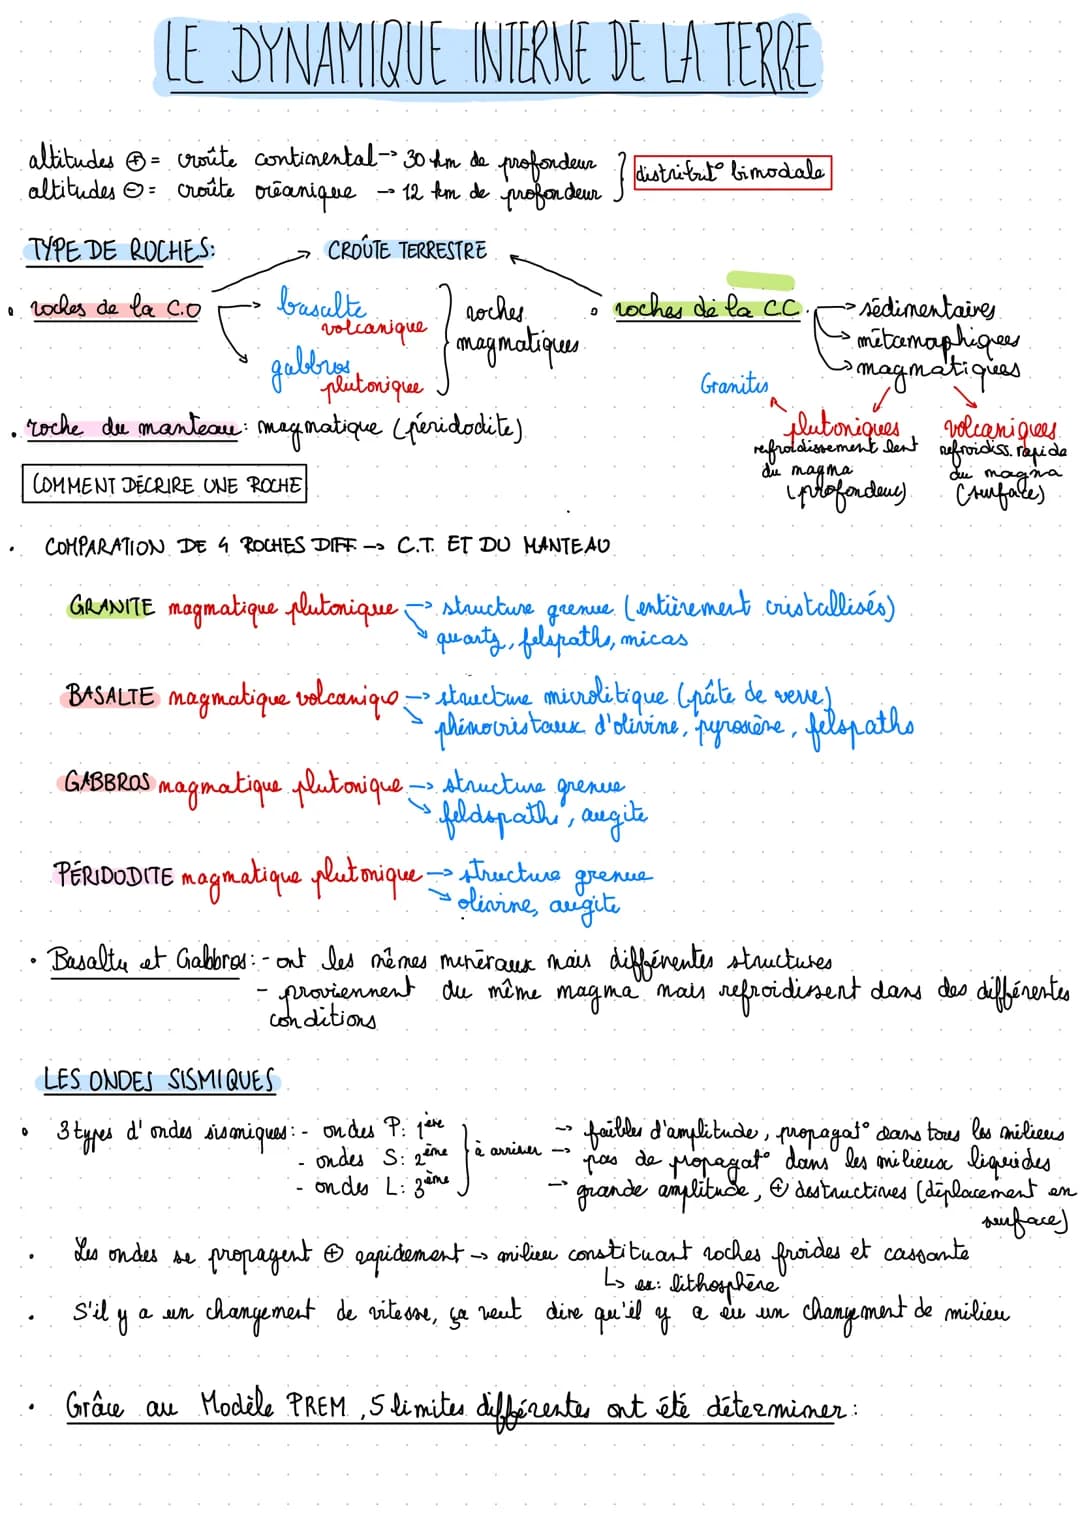 LE DYNAMIQUE INTERNE DE LA TERRE
altitudes ⊕ = croûte continental -> 30 km de profondeur
altitudes ⊖ = croûte océanique -> 12 km de profondeur
distribut° bimodale
TYPE DE ROCHES:
CROÛTE TERRESTRE
• roches de la C.O
basalte
volcanique
gabbros
plutonique
roches
magmatiques
• roches de la C.C.
-> sédimentaires
-> métamophiques
-> magmatiques
Granites
plutoniques
refroidissement lent
du magma
(profondeur)
volcaniques
refroidiss. rapide
du magma
(surface)
• roche du manteau: magmatique (péridodite)
COMMENT DÉCRIRE UNE ROCHE
• COMPARATION DE 4 ROCHES DIFF. -> C.T. ET DU MANTEAU
GRANITE magmatique plutonique -> structure grenue (entièrement cristallisés)
quartz, felspaths, micas
BASALTE magmatique volcaniqe -> structure microlitique (pâte de verre)
phénocristaux d'olivine, pyroxène, felspaths
GABBROS magmatique plutonique -> structure grenue
feldspaths, augite
PÉRIDODITE magmatique plutonique -> structure grenue
olivine, augite
• Basalte et Gabbros: - ont les mêmes minéraux mais différentes structures
- proviennent du même magma mais refroidissent dans des différentes
conditions
LES ONDES SISMIQUES
• 3 types d'ondes sismiques: - ondes P: 1ère
- ondes S: 2ème
- ondes L: 3ème
à arriver
-> faibles d'amplitude, propagat° dans tous les milieus
-> pas de propagat° dans les milieux liquides
-> grande amplitude, ⊕ destructives (déplacement en
surface)
• Les ondes se propagent ⊕ rapidement -> milieu constituant roches froides et cassante
↳ ex: lithosphère
• S'il y a un changement de vitesse, ça veut dire qu'il y a eu un changement de milieu
• Grâce au Modèle PREM, 5 limites différentes ont été déterminer: